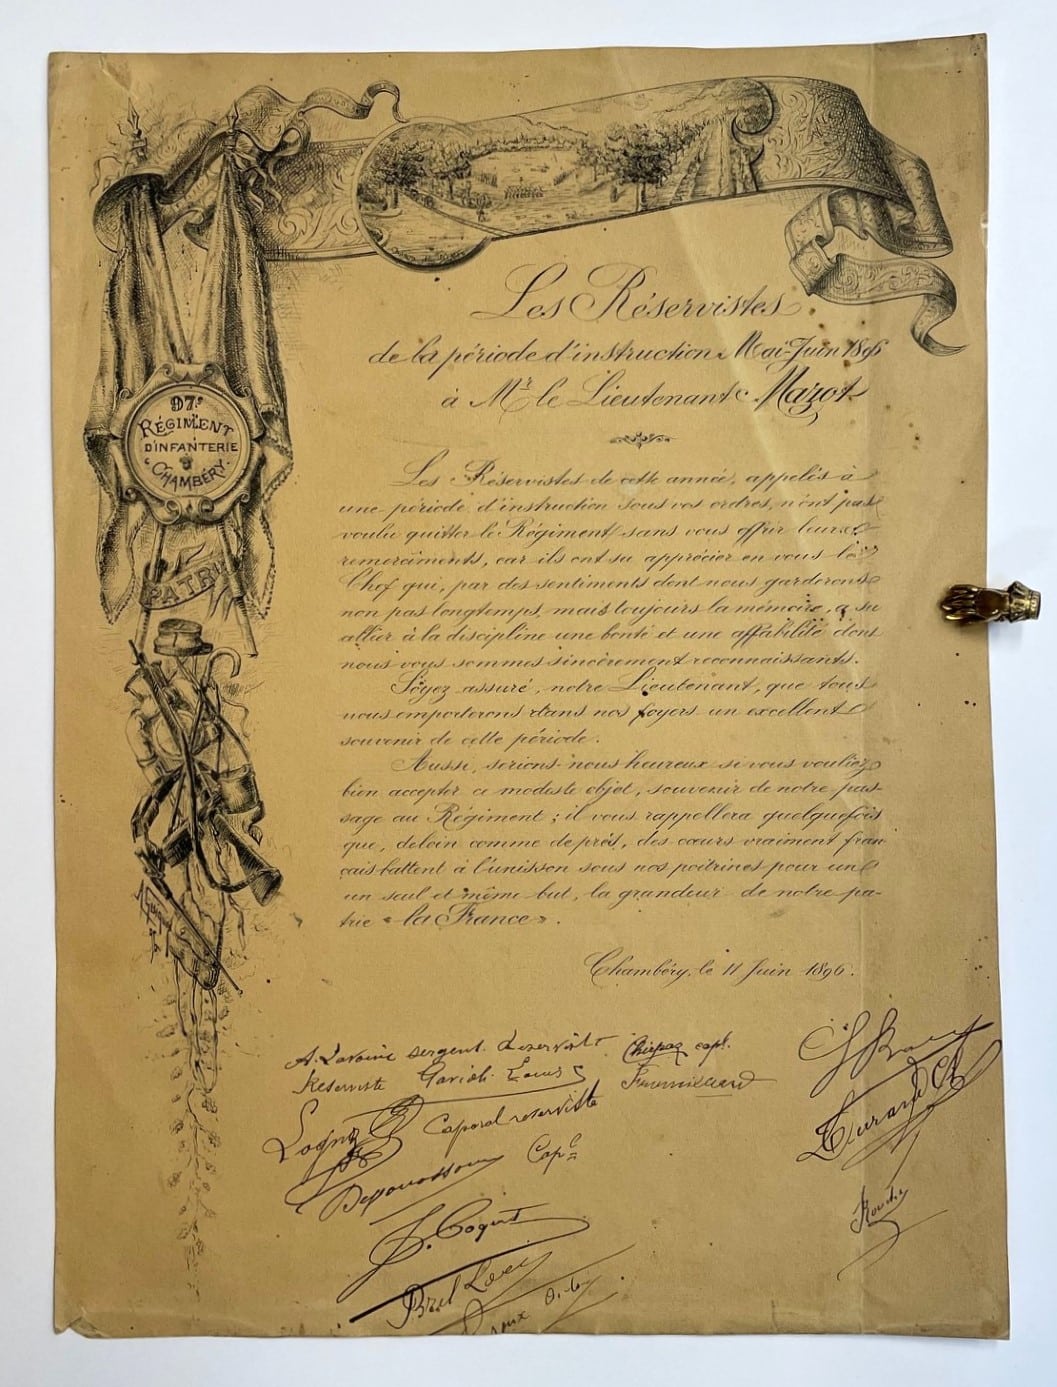 Les Réservistes
de la période d'instruction Mai-Juin 1896
à Mr le Lieutenant Mazot
97e
RÉGIMENT
D'INFANTERIE
CHAMBÉRY
PATRIE
Les Réservistes de cette année, appelés à
une période d'instruction sous vos ordres, n'ont pas
voulu quitter le Régiment sans vous offrir leurs
remerciments, car ils ont su apprécier en vous le
Chef qui, par des sentiments dont nous garderons
non pas longtemps, mais toujours la mémoire, a su
allier à la discipline une bonté et une affabilité dont
nous vous sommes sincèrement reconnaissants.
Soyez assuré, notre Lieutenant, que tous
nous emporterons dans nos foyers un excellent
souvenir de cette période.
Aussi, serions-nous heureux si vous vouliez
bien accepter ce modeste objet, souvenir de notre pas-
sage au Régiment ; il vous rappellera quelquefois
que, de loin comme de près, des cœurs vraiment fran-
çais battent à l'unisson sous nos poitrines pour un
un seul et même but, la grandeur de notre pa-
trie « la France ».
Chambéry, le 11 Juin 1896.
A. Lavoine sergent Reserviste
capl.
Réserviste Gavioli Louis
Caporal reserviste
Capl
J. Coquet
Durand
Roux